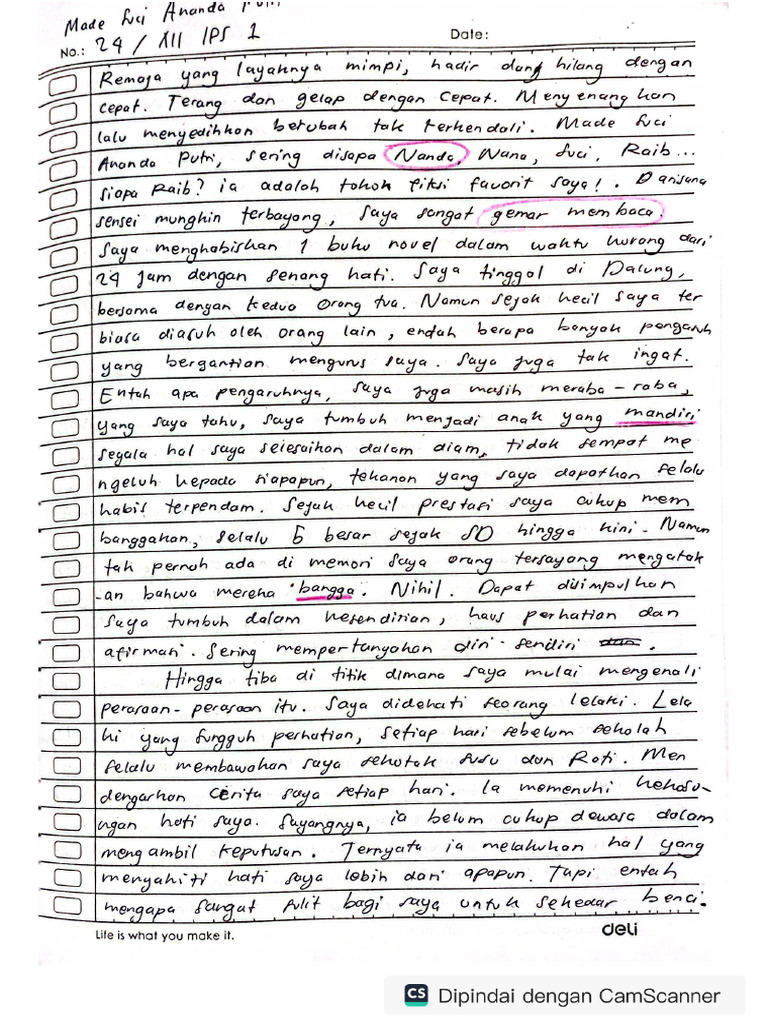 Made Suci Ananda Putri
No.: 24 / XII IPS 1
Date:
Remaja yang layaknya mimpi, hadir dang hilang dengan
cepat. Terang dan gelap dengan cepat. Menyenangkan
lalu menyedihkan berubah tak terkendali. Made Suci
Ananda Putri, sering disapa Nanda, Nana, Suci, Raib...
Siapa Raib? ia adalah tokoh fiksi favorit saya!. Darisana
sensei mungkin terbayang, saya sangat gemar membaca.
Saya menghabiskan 1 buku novel dalam waktu kurang dari
24 jam dengan senang hati. Saya tinggal di Dalung,
bersama dengan kedua orang tua. Namun sejak kecil saya ter
biasa diasuh oleh orang lain, entah berapa banyak pengasuh
yang bergantian mengurus saya. Saya juga tak ingat.
Entah apa pengaruhnya, saya juga masih meraba-raba,
yang saya tahu, saya tumbuh menjadi anak yang mandiri
segala hal saya selesaikan dalam diam, tidak sempat me
ngeluh kepada siapapun, tekanan yang saya dapatkan selalu
habis terpendam. Sejak kecil prestasi saya cukup mem
banggakan, selalu 5 besar sejak SD hingga kini. Namun
tak pernah ada di memori saya orang tersayang mengatak
-an bahwa mereka 'bangga. Nihil. Dapat disimpulkan
saya tumbuh dalam kesendirian, haus perhatian dan
afirmasi. Sering mempertanyakan diri-sendiri.
Hingga tiba di titik dimana saya mulai mengenali
perasaan-perasaan itu. Saya didekati seorang lelaki. Lela
ki yang sungguh perhatian, setiap hari sebelum sekolah
selalu membawakan saya sekotak susu dan Roti. Men
dengarkan cerita saya setiap hari. Ia memenuhi kekoso-
ngan hati saya. Sayangnya, ia belum cukup dewasa dalam
mengambil keputusan. Ternyata ia melakukan hal yang
menyakiti hati saya lebih dari apapun. Tapi entah
mengapa sangat sulit bagi saya untuk sekedar benci.
Life is what you make it.
deli
CS Dipindai dengan CamScanner